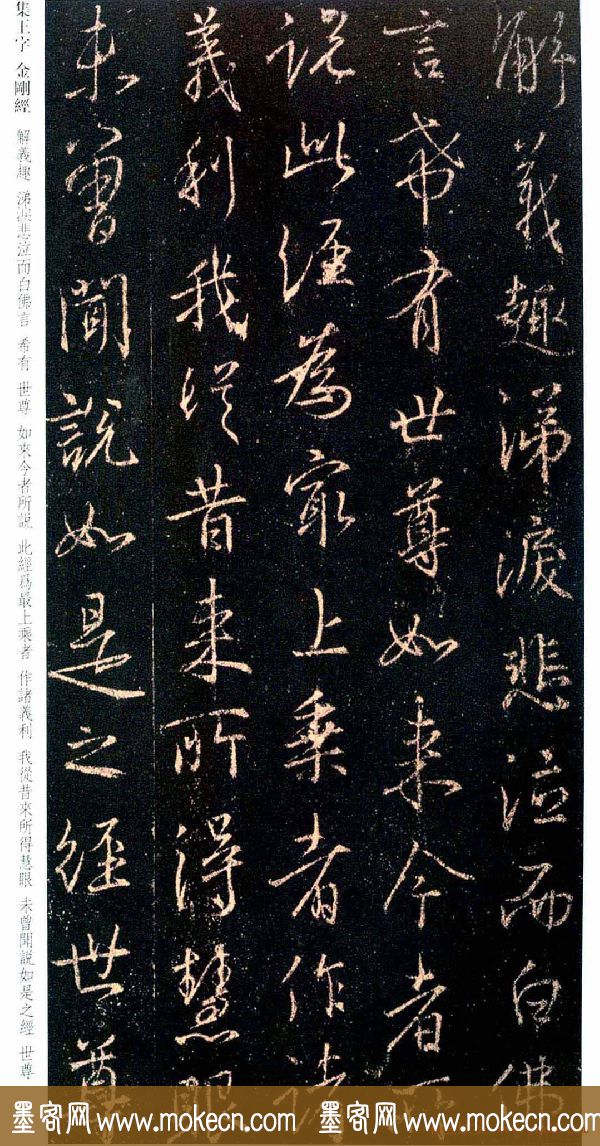 解義趣涕淚悲泣而白佛
言希有世尊如来今者所
說此經為最上乘者作諸
義利我從昔来所得慧眼
未曾聞說如是之經世尊
集王字 金剛經 解義趣 涕淚悲泣而白佛言 希有 世尊 如來今者所說 此經爲最上乘者 作諸義利 我從昔來所得慧眼 未曾聞說如是之經 世尊
墨客网 www.mokecn.com 墨客网 www.mokecn.com